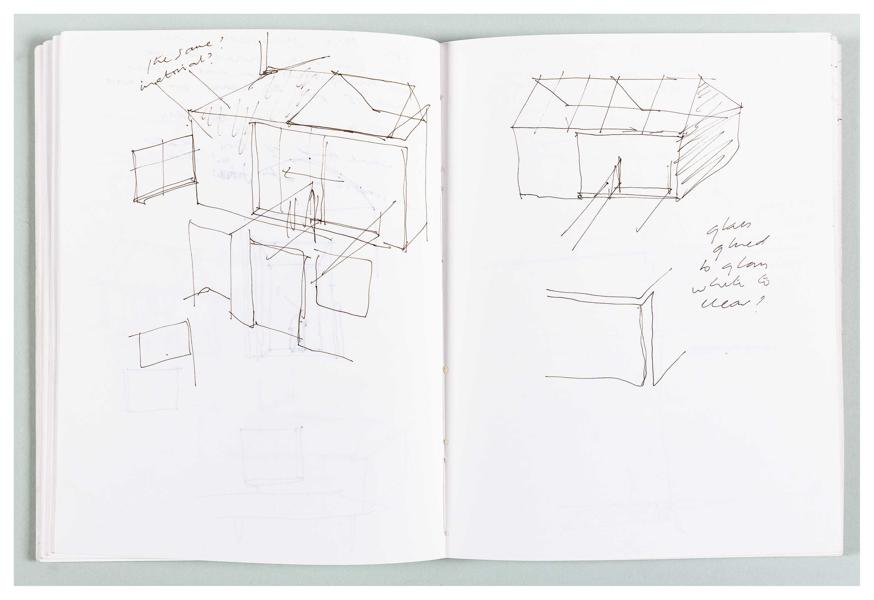 the same?
material?
glass
glued
to glass
white to
clear?